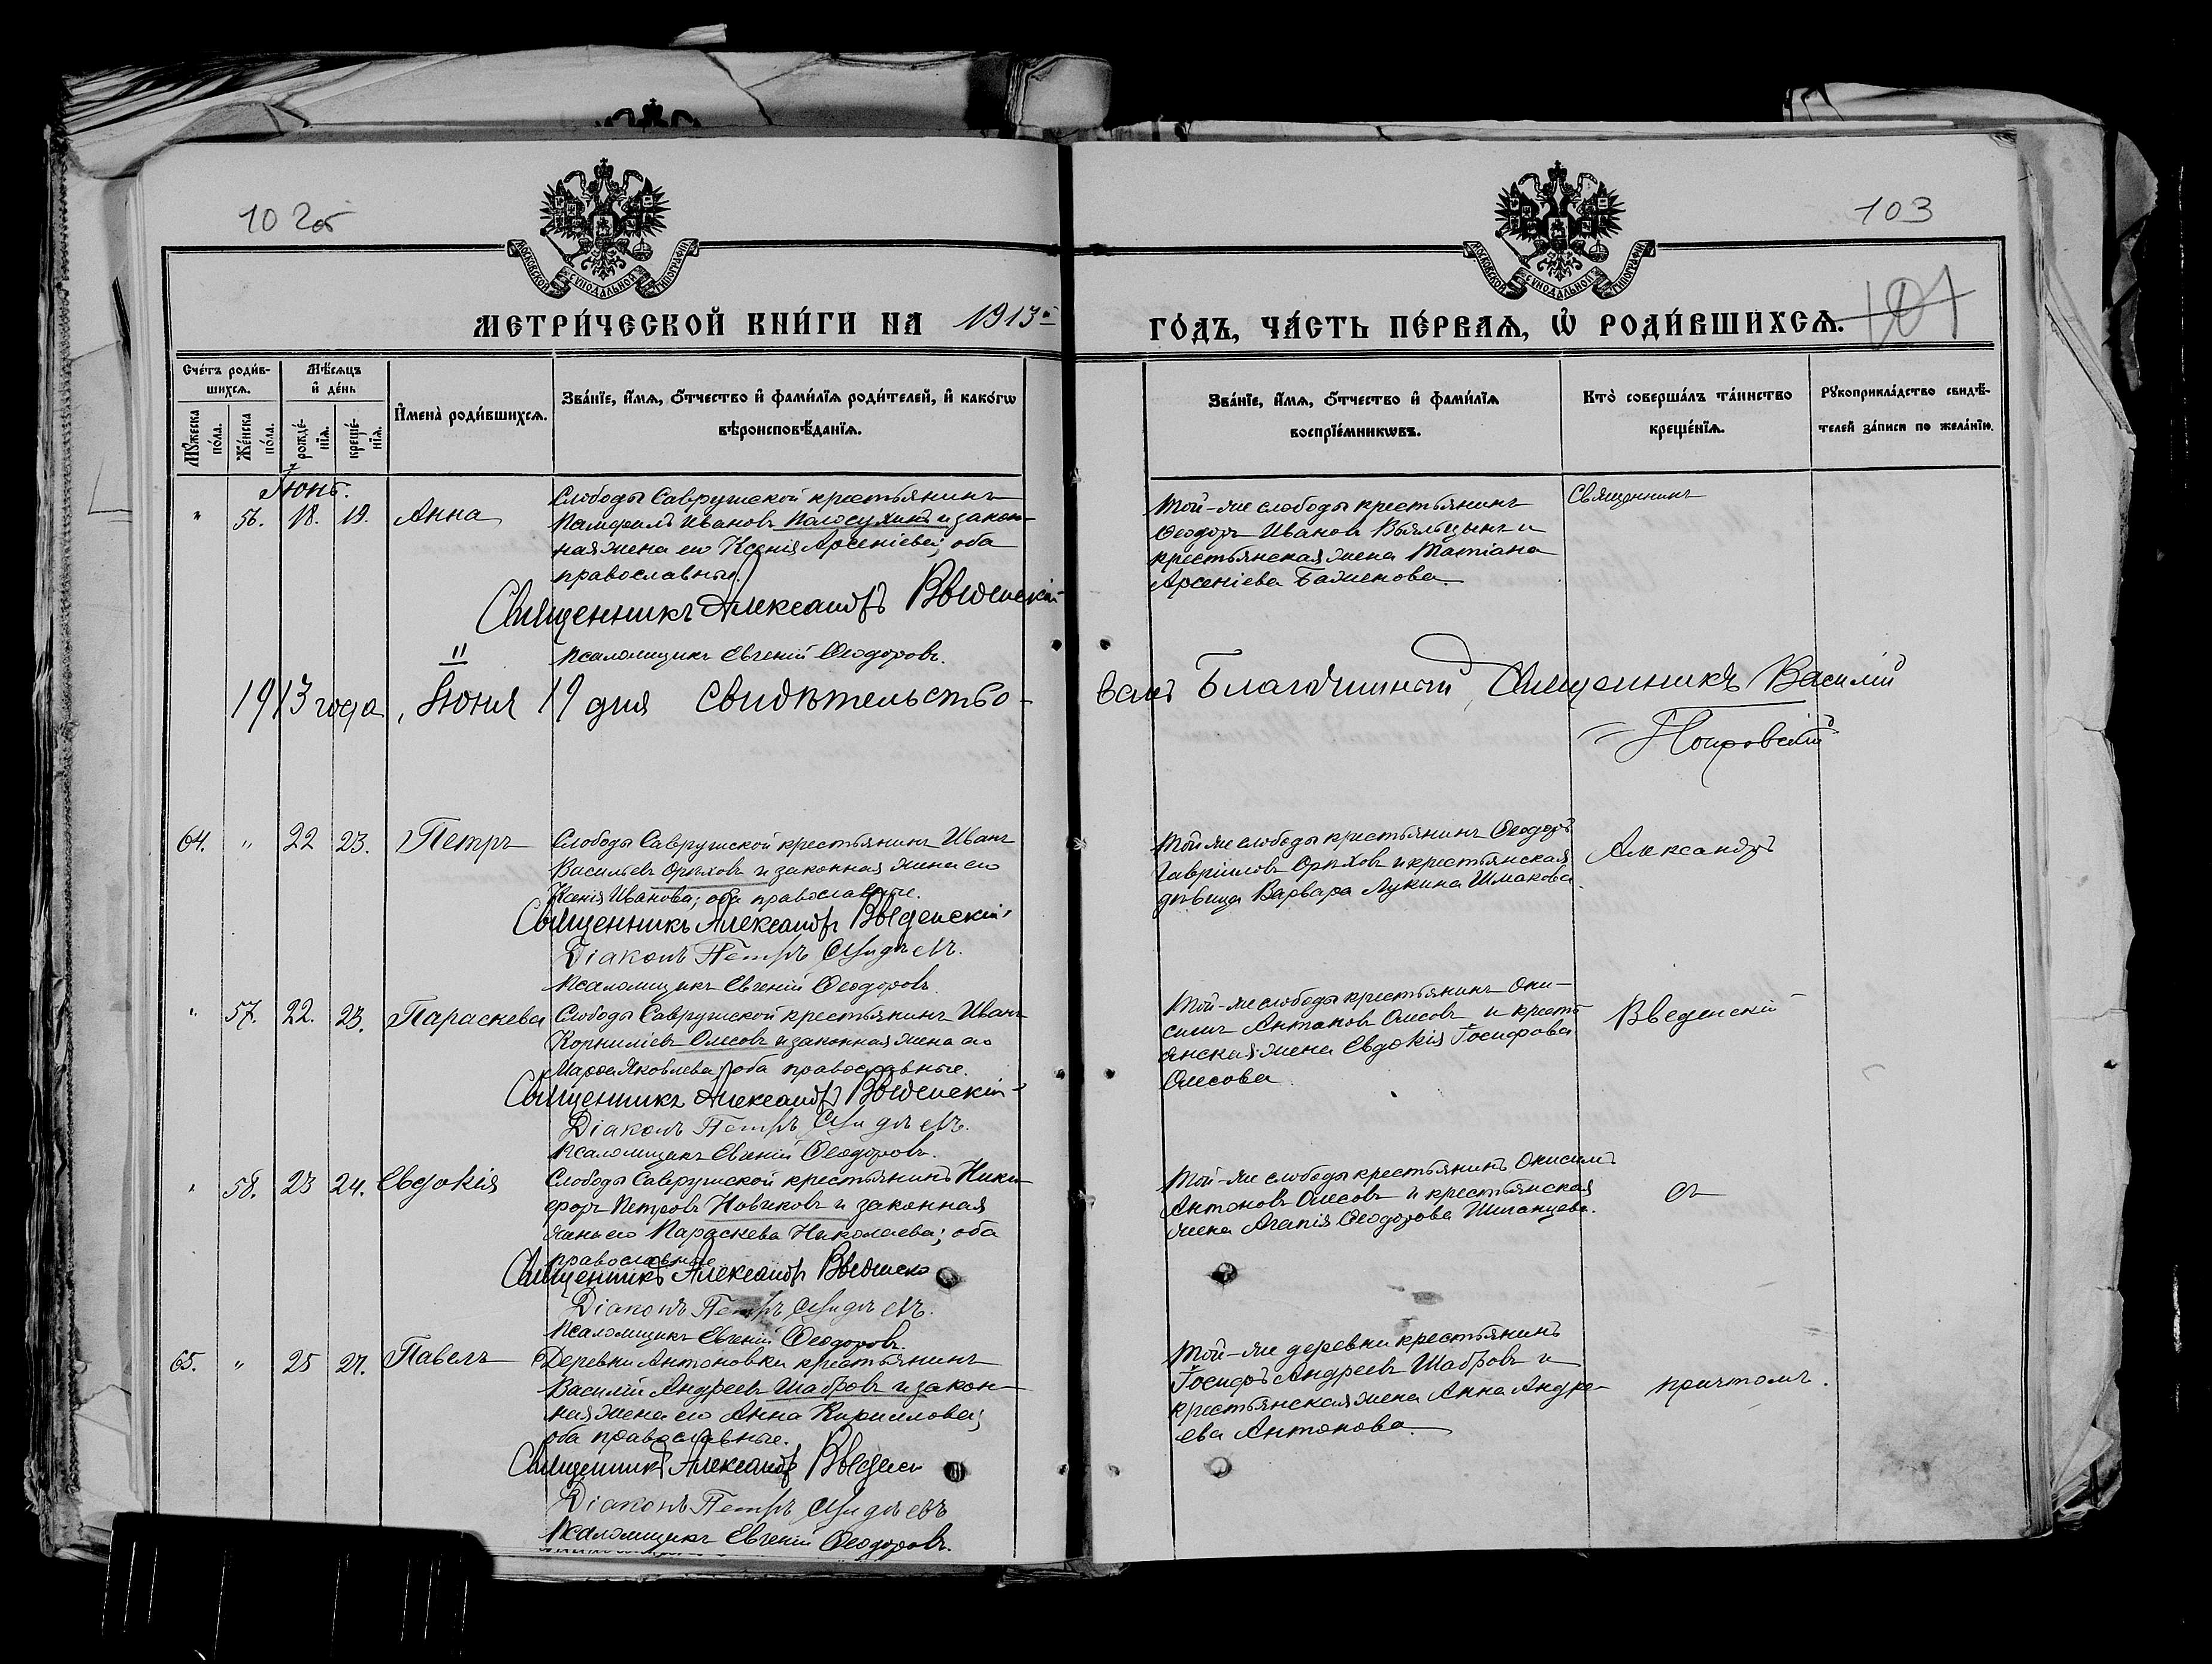 102об
103
101
МОСКОВСКОЙ СѴНОДАЛЬНОЙ ТИПОГРАФІИ
МОСКОВСКОЙ СѴНОДАЛЬНОЙ ТИПОГРАФІИ
МЕТРИ́ЧЕСКОЙ КНИ́ГИ НА 1913й
ГО́ДЪ, ЧА́СТЬ ПЕ́РВАѦ, Ѡ҆ РОДИ́ВШИХСѦ.
Сче́тъ роди́в-
шихсѧ.
Мѣ́сѧцъ
и҆ де́нь
Мꙋ́жеска
по́ла.
Же́нска
по́ла.
рожде́-
нїѧ.
креще́-
нїѧ.
И҆мена̀ роди́вшихсѧ.
Зва́нїе, и҆́мѧ, ѻ҆́тчество и҆ фами́лїѧ роди́телей, и҆ како́гѡ
вѣроисповѣ́данїѧ.
Зва́нїе, и҆́мѧ, ѻ҆́тчество и҆ фами́лїѧ
воспрїе́мникѡвъ.
Кто̀ соверша́лъ та́инство
креще́нїѧ.
Рꙋкоприкла́дство свидѣ́-
телей за́писи по жела́нїю.
Іюнь.
" 56. 18. 19. Анна
Слободы Саврушской крестьянинъ
Памфилъ Ивановъ Палосухинъ и закон-
ная жена его Ксенія Арсеніева; оба
православные.
Священникъ Александръ Введенскій
Псаломщикъ Евгеній Ѳеодоровъ.
Той-же слободы крестьянинъ
Ѳеодоръ Ивановъ Вяльцынъ и
крестьянская жена Татіана
Арсеніева Баженова.
Священникъ
1913 года, Іюня 19 дня свидѣтельство-
валъ Благочинный Священникъ Василій
Покровскій
64. " 22 23. Петръ
Слободы Саврушской крестьянинъ Иванъ
Васильевъ Орѣховъ и законная жена его
Ксенія Иванова; оба православные.
Священникъ Александръ Введенскій
Діаконъ Петръ
Псаломщикъ Евгеній Ѳеодоровъ.
Той же слободы крестьянинъ Ѳеодоръ
Гавріиловъ Орѣховъ и крестьянская
дѣвица Варвара Лукина Шмакова.
Александръ
" 57. 22. 23. Параскева
Слободы Саврушской крестьянинъ Иванъ
Корниліевъ Олесовъ и законная жена его
Марѳа Яковлева; оба православные.
Священникъ Александръ Введенскій
Діаконъ Петръ
Псаломщикъ Евгеній Ѳеодоровъ.
Той-же слободы крестьянинъ Они-
симъ Антоновъ Олесовъ и кресть-
янская жена Евдокія Іосифова
Олесова.
Введенскій
" 58. 23 24. Евдокія
Слободы Саврушской крестьянинъ Ники-
форъ Петровъ Новиковъ и законная
жена его Параскева Николаева; оба
православные.
Священникъ Александръ Введенск
Діаконъ Петръ
Псаломщикъ Евгеній Ѳеодоровъ.
Той-же слободы крестьянинъ Онисимъ
Антоновъ Олесовъ и крестьянская
жена Агапія Ѳеодорова
съ
65. " 25 27. Павелъ
Деревни Антоновки крестьянинъ
Василій Андреевъ Шабровъ и закон-
ная жена его Анна Кириллова;
оба православные.
Священникъ Александръ Введенск
Діаконъ Петръ
Псаломщикъ Евгеній Ѳеодоровъ.
Той-же деревни крестьянинъ
Іосифъ Андреевъ Шабровъ и
крестьянская жена Анна Андре-
ева Антонова.
причтомъ.